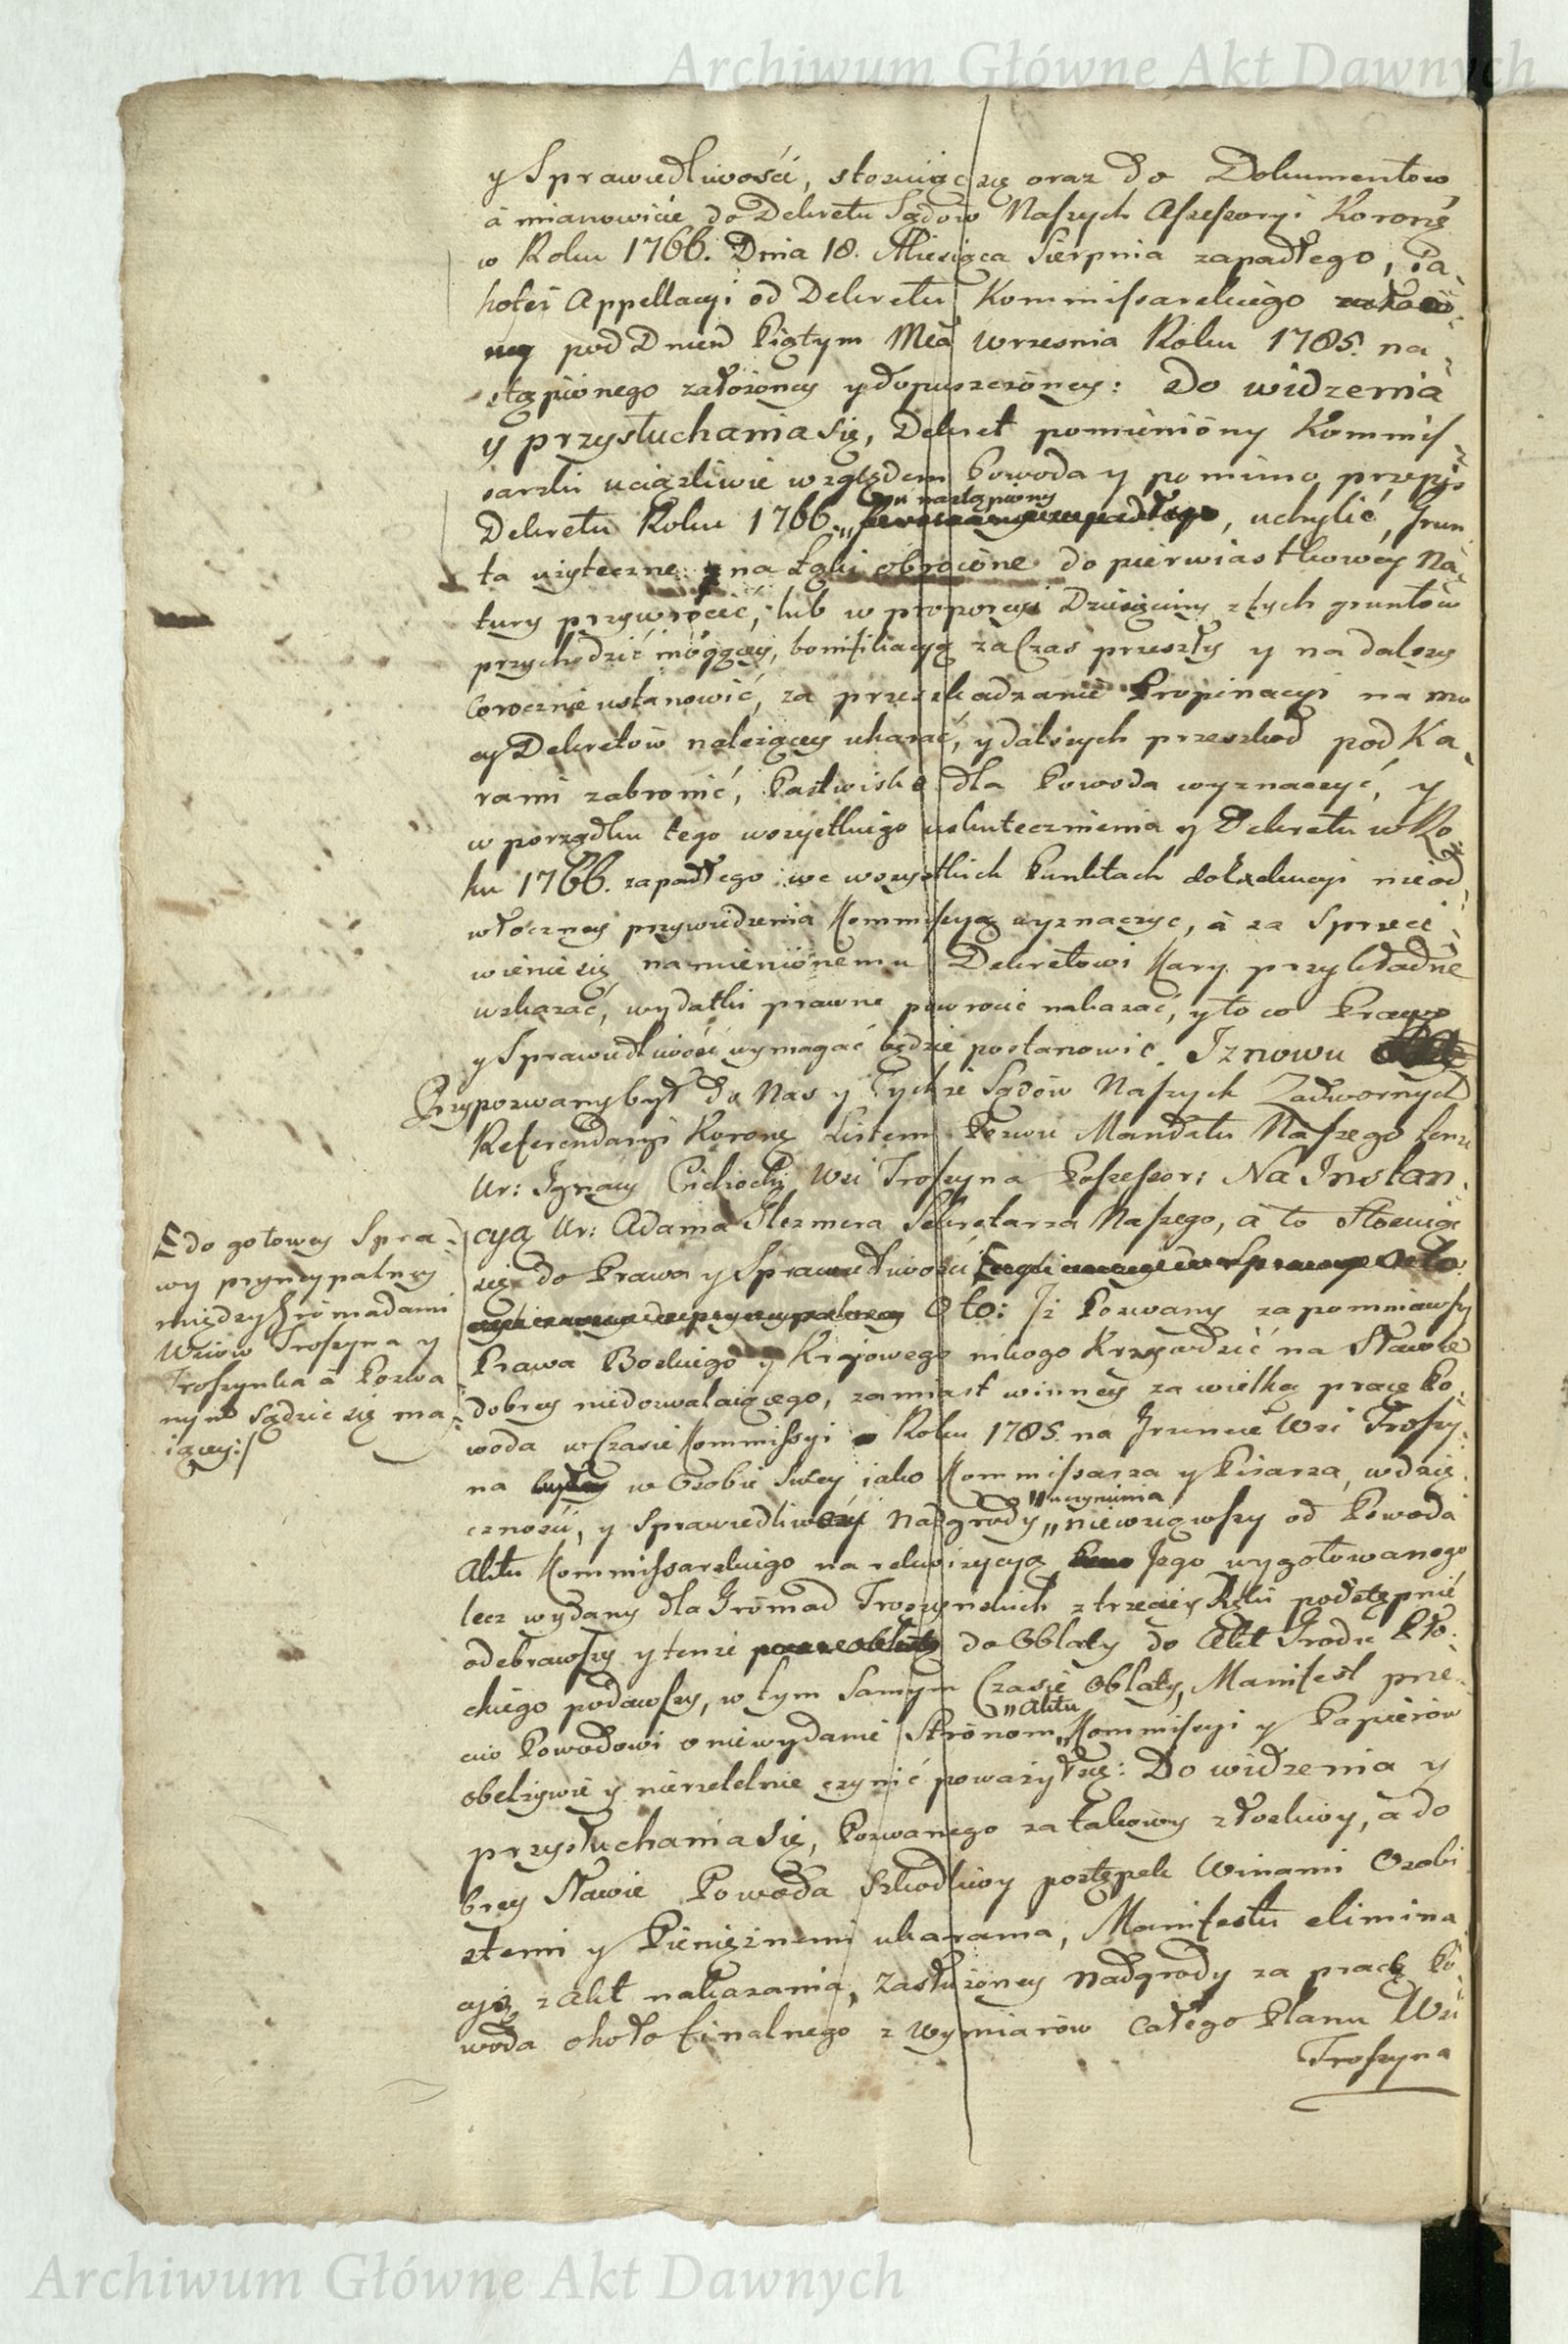 Archiwum Główne Akt Dawnych
y Sprawiedliwości, stosuiąc się oraz do Dokumentow
á mianowicie do Dekretu Sądów Naszych Assessoryi Koronę
w Roku 1766. Dnia 18. Miesiąca Sierpnia zapadłego, Ta-
koteż Appellacyi od Dekretu Kommissarskiego
pod Dniem Piątym Mca Wrzesnia Roku 1785. na-
stąpionego załozoney y dopuszczoney: Do widzenia
y przysłuchania się, Dekret pomieniony Kommis-
sarski uciązliwie względem Powoda y pomimo przepis
Dekretu Roku 1766. „ nastąpiony , uchylić, Grun
ta uzyteczne na Łąki obrocone do pierwiastkowey Na-
tury przywrocić, lub w proporcyi Dziesięciny z tych gruntow
przychodzić mogącey, bonifikacyą za Czas przeszły y na dalszy
corocznie ustanowić, za przeszkadzanie Propinacyi na mo
cy Dekretow nalezącey ukarać, y dalszych przeszkod pod Ka-
rami zabronić, Pastwisko dla Powoda wyznaczyć, y
w porządku tego wszystkiego uskutecznienia y Dekretu w Ro-
ku 1766. zapadłego we wszystkich Punktach do Exekucyi nieod-
włoczney przywiedzenia Kommissyą wyznaczyc, á za Sprzeci-
wienie się namienionemu Dekretowi Kary przykładne
wskazać, wydatki prawne powrocić nakazać, y to co Prawo
y Sprawiedliwość wymagać będzie postanowić. Iznowu
Przypozwany był do Nas y Tychże Sądów Naszych Zadwornych
Referendaryi Koronę Listem Pozwu Mandatu Naszego tenże
Ur: Ignacy Cichocki Wsi Troszyna Possessor: Na Instan-
cyą Ur: Adama Glezmera Sekretarza Naszego, á to Stosuiąc
się do Prawa y Sprawiedliwości
Oto: Iż Pozwany zapomniawszy
Prawa Boskiego y Krajowego nikogo Krzywdzić na Sławie
dobrey niedozwalaiącego, zamiast winney za wielką pracę Po-
woda w Czasie Kommissyi Roku 1785. na Gruncie Wsi Troszy-
na w Osobie Swey iako Kommissarza y Pisarza, wdzię-
cznosci, y sprawiedliwey Nadgrody „uczynienia „niewziąwszy od Powoda
Aktu Kommissarskiego na rekwizycyą Jego wygotowanego
lecz wydany dla Gromad Troszynskich z trzeciey Ręki podstępnie
odebrawszy y tenze do Oblaty do Akt Grodu Pło-
ckiego podawszy, w tym Samym Czasie Oblaty, Manifest prze-
ciw Powodowi o niewydanie Stronom „Aktu „Kommissyi y Papierow
obelzywie y nierzetelnie czynić powazył się: Do widzenia y
przysłuchania się, Pozwanego za takowy złosliwy, á do
brey Sławie Powoda szkodliwy postępek Winami Osobi
stemi y Pieniężnemi ukarania, Manifestu elimina
cyą z Akt nakazania, Zasłużoney Nadgrody za pracę Po-
woda około finalnego z Wymiarów całego Planu Wsi
Troszyna
do gotowey Spra-
wy pryncypalney
między Gromadami
Wsiów Troszyna y
Troszynka á Pozwa
nym Sądzić się ma-
iącey:/
Archiwum Główne Akt Dawnych